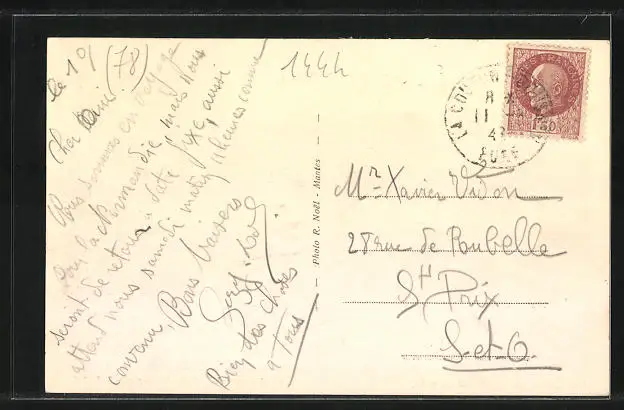 le 10/
(78)
Cher Ami.
Nous sommes en voyage
pour la Normandie, mais nous
seront de retour à date fixe, aussi
attend nous samedi matin 11 heures comme
convenu. Bons baisers
Bien des choses
a Tous
1444
Photo R. Noël - Mantes
POSTES FRANÇAISES
EURE
Mr Xavier Vidon
28 rue de Paubelle
St Prix
S.et.O.